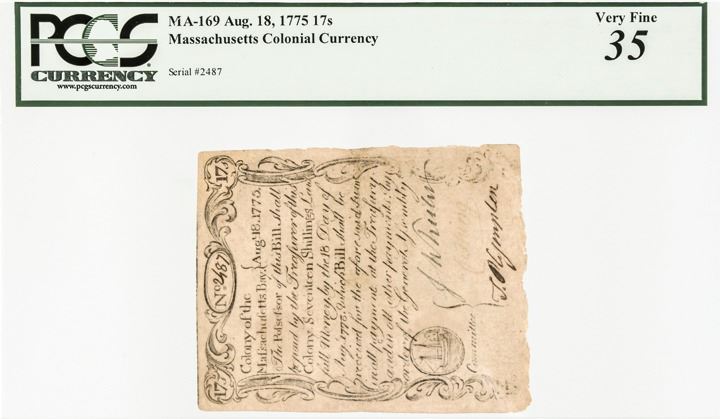 PCGS
CURRENCY
www.pcgscurrency.com
MA-169 Aug. 18, 1775 17s
Massachusetts Colonial Currency
Serial #2487
Very Fine
35
17s
No 2487
17s
Colony of the
Massachusetts Bay Augt 18. 1775.
The Possessor of this Bill shall
be paid by the Treasurer of this
Colony Seventeen Shillings Law
full Money, by the 18 Day of
Augt 1778 which Bill shall be
received for the aforesaid Sum
in all payments at the Treasury
and in all other payments by
order of the General Assembly
Committee